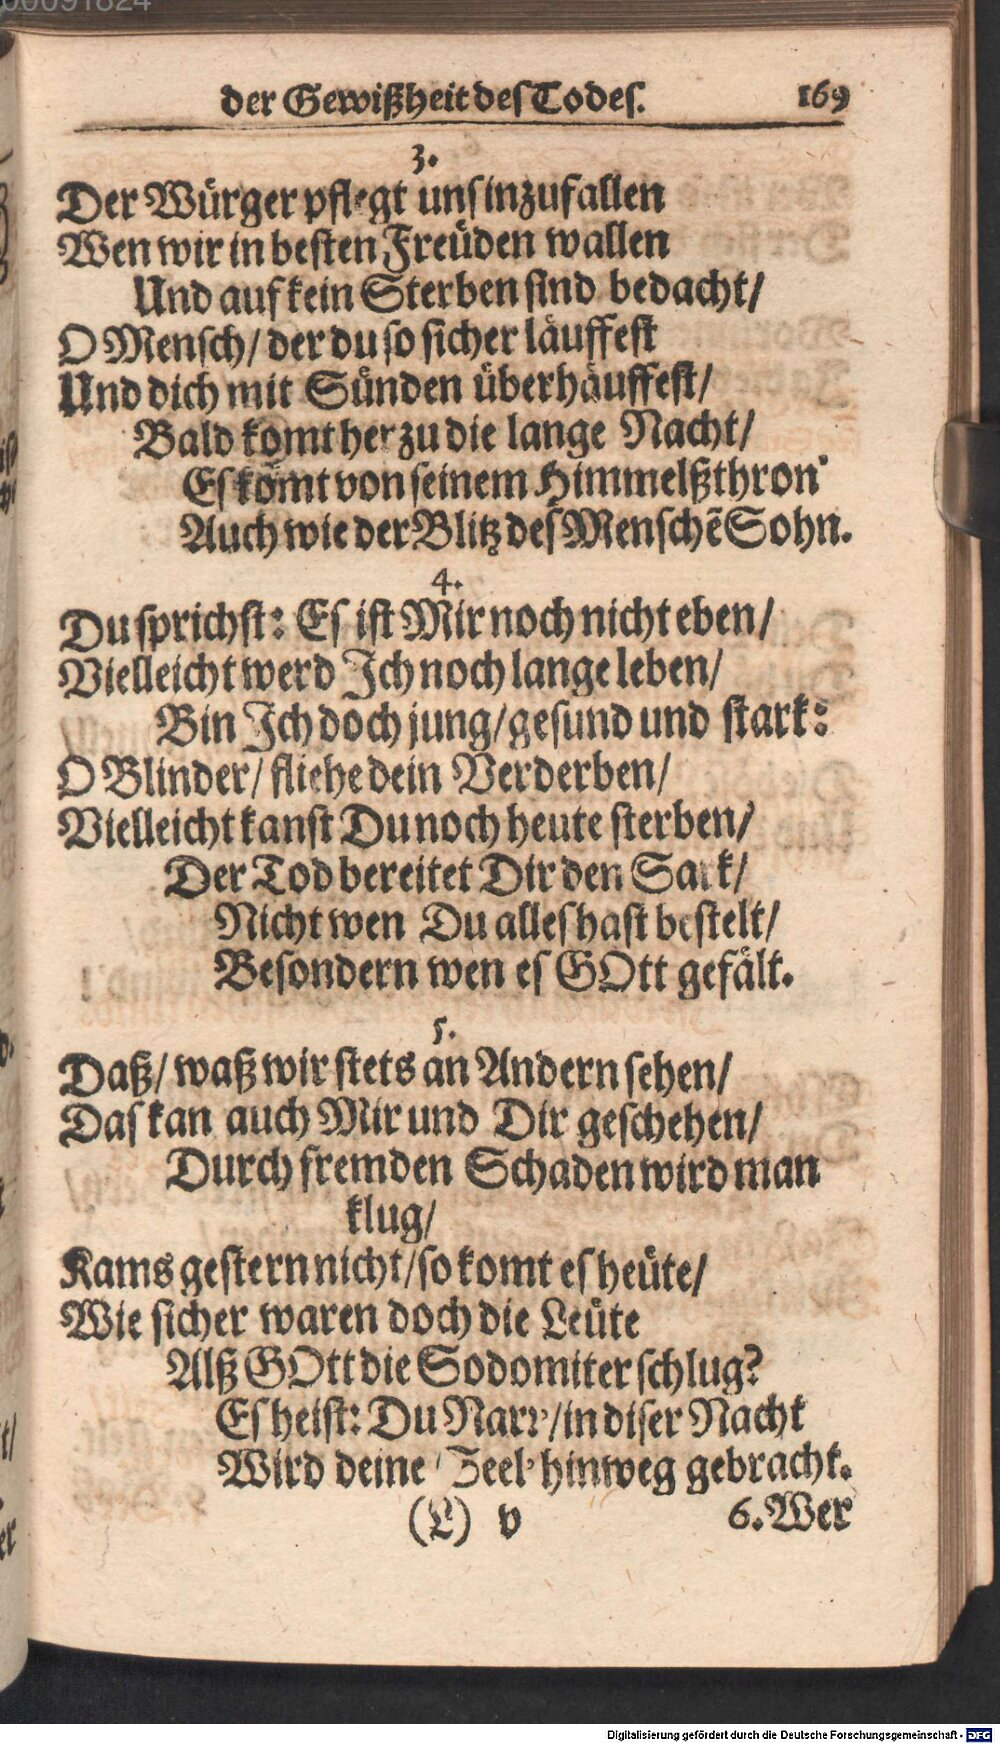 00091824
der Gewißheit des Todes. 169
3.
Der Würger pflegt uns inzufallen
Wen wir in besten Freüden wallen
Und auf kein Sterben sind bedacht/
O Mensch/ der du so sicher läuffest
Und dich mit Sünden überhäuffest/
Bald komt herzu die lange Nacht/
Es kömt von seinem Himmelßthron
Auch wie der Blitz des Menschẽ Sohn.
4.
Du sprichst: Es ist Mir noch nicht eben/
Vielleicht werd Ich noch lange leben/
Bin Ich doch jung/ gesund und stark:
O Blinder/ fliehe dein Verderben/
Vielleicht kanst Du noch heute sterben/
Der Tod bereitet Dir den Sark/
Nicht wen Du alles hast bestelt/
Besondern wen es GOtt gefält.
5.
Daß/ waß wir stets an Andern sehen/
Das kan auch Mir und Dir geschehen/
Durch fremden Schaden wird man
klug/
Kams gestern nicht/ so komt es heüte/
Wie sicher waren doch die Leüte
Alß GOtt die Sodomiter schlug?
Es heist: Du Narr/ in diser Nacht
Wird deine Seel' hinweg gebracht.
(L) v 6. Wer
Digitalisierung gefördert durch die Deutsche Forschungsgemeinschaft - DFG